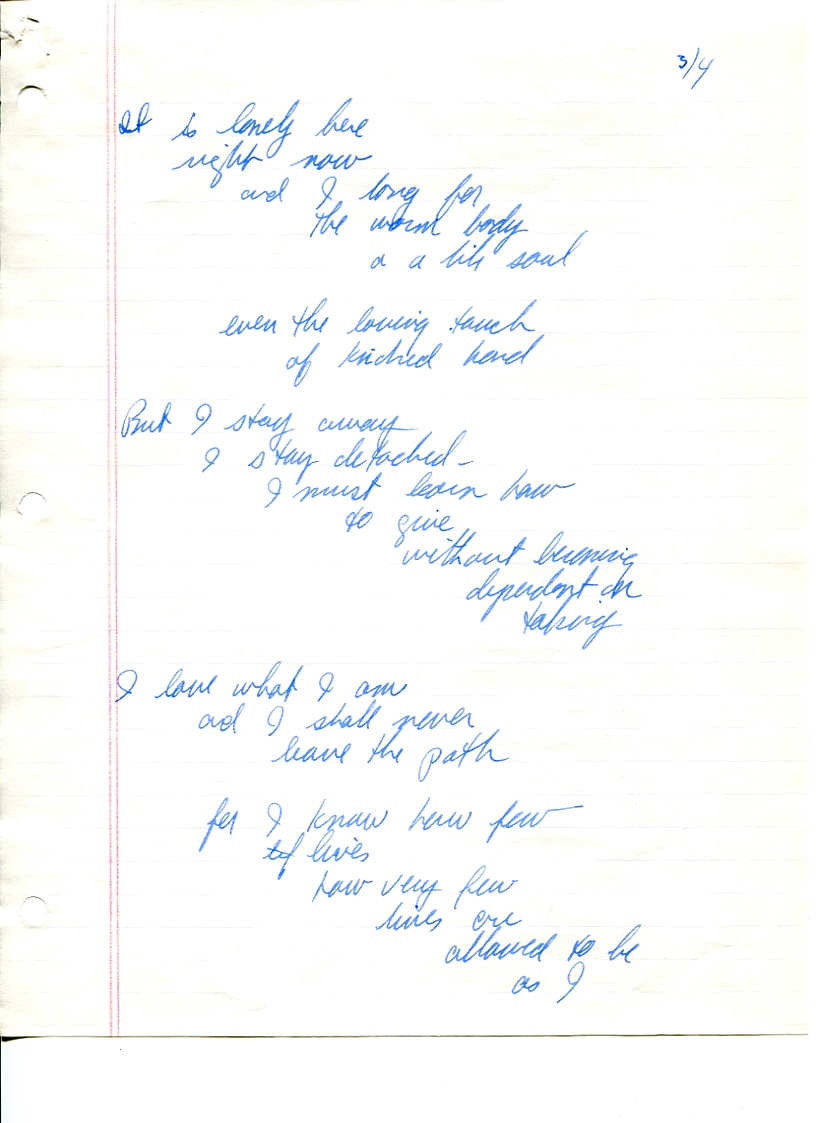 3/4
It is lonely here
right now
and I long for
the warm body
a a like soul
even the loving touch
of kindred hand
But I stay away
I stay detached -
I must learn how
to give
without becoming
dependent on
taking
I love what I am
and I shall never
leave the path
for I know how few
of lives
how very few
lives are
allowed to be
as I